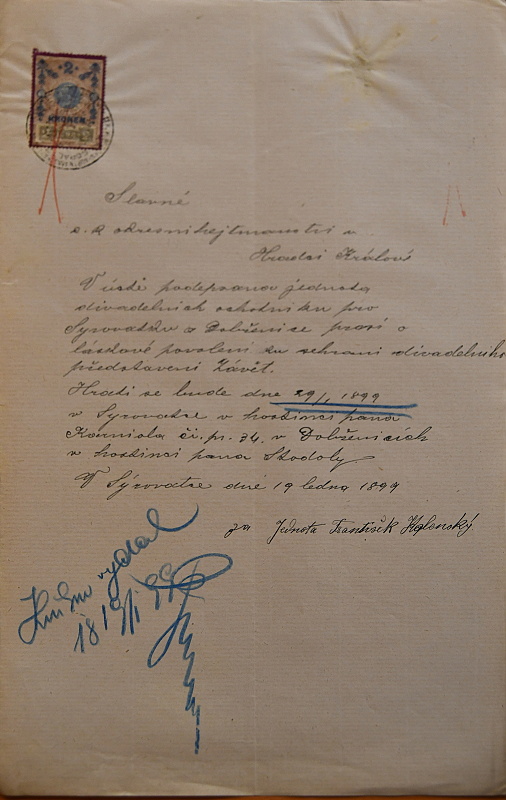 2
KRONEN
Slavné
c. k okresní hejtmanství v
Hradci Králové
V úctě podepsaná jednota
divadelních ochotníku pro
Syrovátku a Dobřenice prosí o
láskavé povolení ku sehraní divadelního
představení Závět.
Hráti se bude dne 29/1 1899
v Syrovátce v hostinci pana
či. pr. 34. v Dobřenicích
v hostinci pana Stodoly
V Sýrovátce dne 19 ledna 1899
za Jednota František
vydal
18 19/1 99